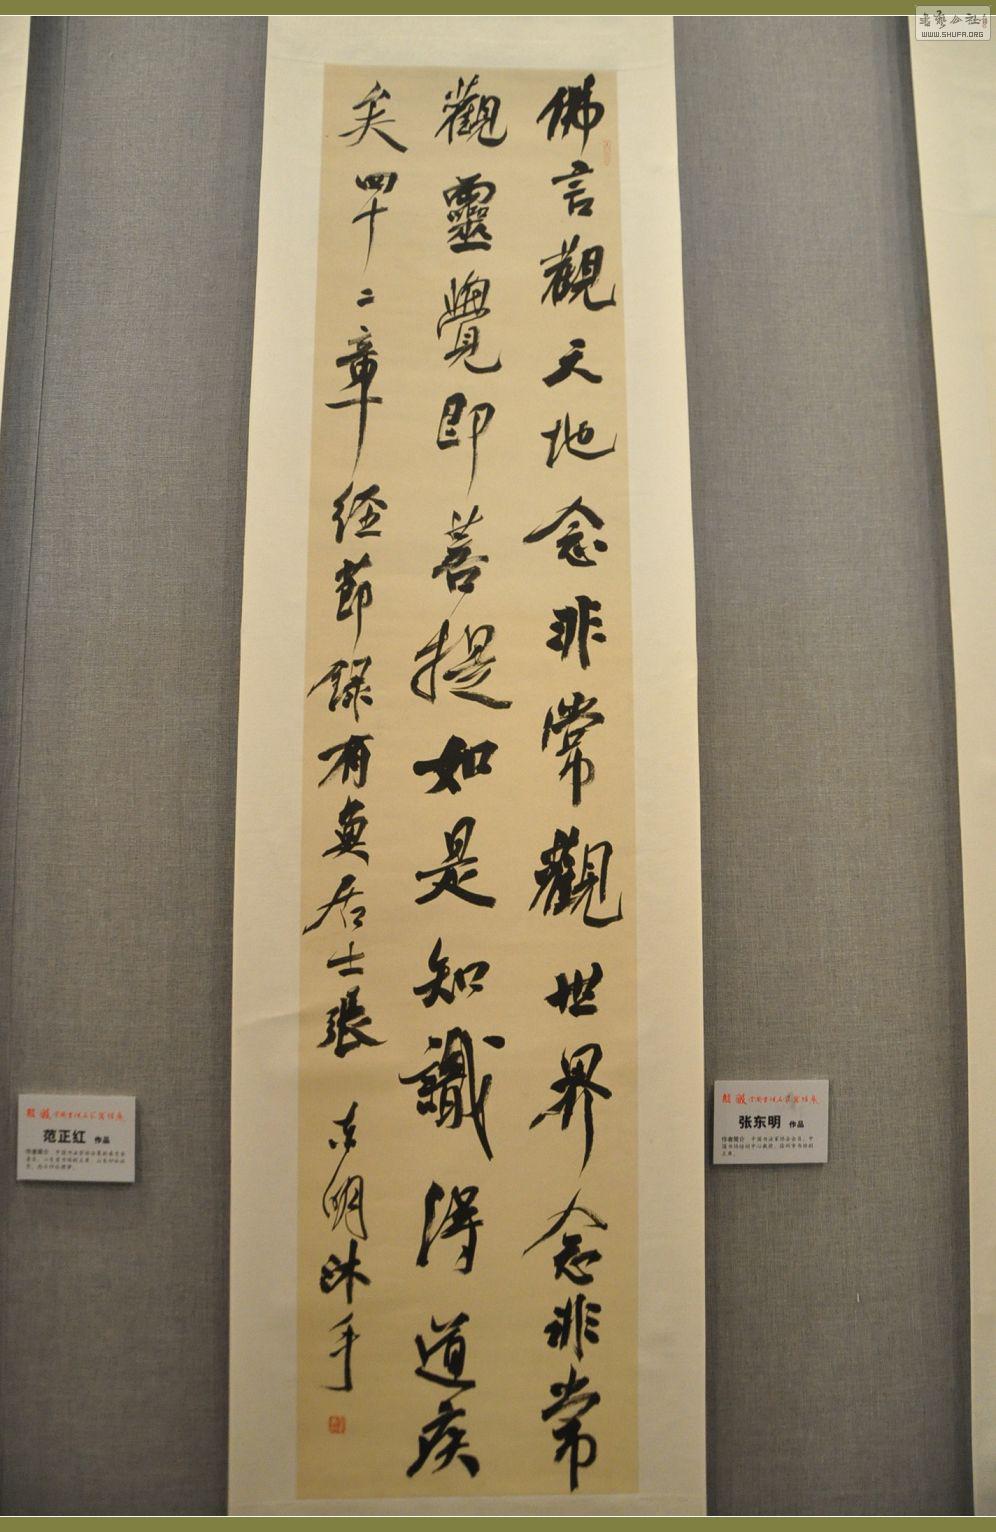 佛言觀天地念非常觀世界念非常
觀靈覺即菩提如是知識得道疾
矣四十二章經節錄有真居士張東明沐手
张东明 作品
作者简介
范正红 作品
作者简介
WWW.SHUFA.ORG